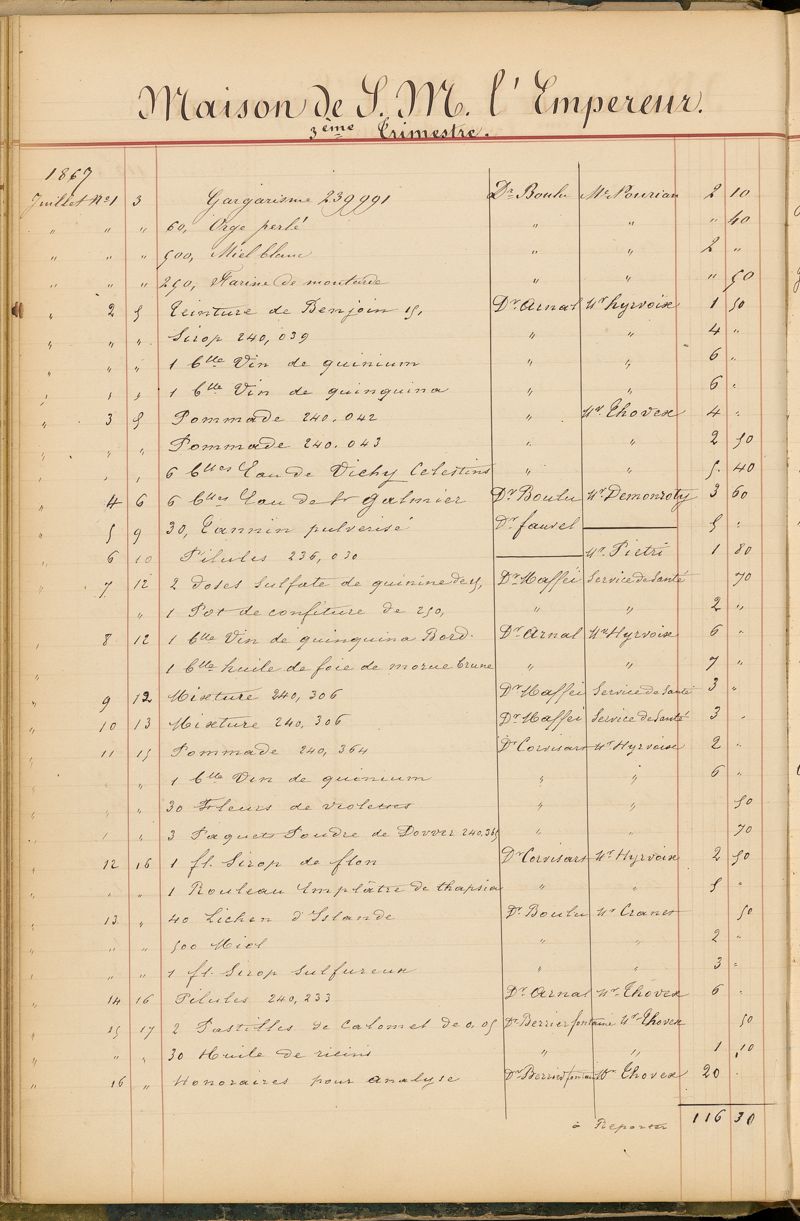 Maison de S. M. l'Empereur.
3ème Trimestre.
1867
Juillet No 1 3 Gargarisme 239991 Dr Boulu Mr Pourian 2 10
" " " 60, Orge perlé " " " 40
" " " 500, Miel blanc " " 2 "
" " " 250, Farine de moutarde " " " 50
" 2 5 Teinture de Benjoin 15, Dr Arnal Mr Hyrvoix 1 50
" " " Sirop 240,039 " " 4 "
" " " 1 blle Vin de quinium " " 6 "
" " " 1 blle Vin de quinquina " " 6 "
" 3 5 Pommade 240.042 " Mr Thovex 4 "
" " " Pommade 240.043 " " 2 50
" " " 6 blles Eau de Vichy Celestins " " 5. 40
" 4 6 6 blles Eau de St Galmier Dr Boulu Mr Demonroty 3 60
" 5 9 30, Tannin pulverisé Dr fauvel — 5 "
" 6 10 Pilules 236,030 — Mr Pietri 1 80
" 7 12 2 doses Sulfate de quinine de 5, Dr Maffei Service de Santé 70
" " 1 Pot de confiture de 250, " " 2 "
" 8 12 1 blle Vin de quinquina Bord. Dr Arnal Mr Hyrvoix 6 "
1 blle huile de foie de morue brune " " 7 "
" 9 12 Mixture 240,306 Dr Maffei Service de Santé 3 "
" 10 13 Mixture 240,306 Dr Maffei Service de Santé 3 "
" 11 15 Pommade 240,364 Dr Corvisart Mr Hyrvoix 2 "
" " 1 blle Vin de quinium " " 6 "
" " " 30 Fleurs de violettes " " 50
" " " 3 Paquets Poudre de Dovver 240,365 " " 70
" 12 16 1 fl. Sirop de flon Dr Corvisart Mr Hyrvoix 2 50
" " " 1 Rouleau Emplâtre de thapsia " " 5 "
" 13 " 40 Lichen d'Islande Dr Boulu Mr Cranes 50
" " " 500 Miel " " 2 "
" " " 1 fl. Sirop Sulfureux " " 3 "
" 14 16 Pilules 240,233 Dr Arnal Mr Thovex 6 "
" 15 17 2 Pastilles de Calomel de 0,05 Dr Berrier fontaine Mr Thovex 50
" " " 30 Huile de ricins " " 1 10
" 16 " Honoraires pour analyse Dr Berrier fontaine Mr Thovex 20 "
à Reporter 116 30